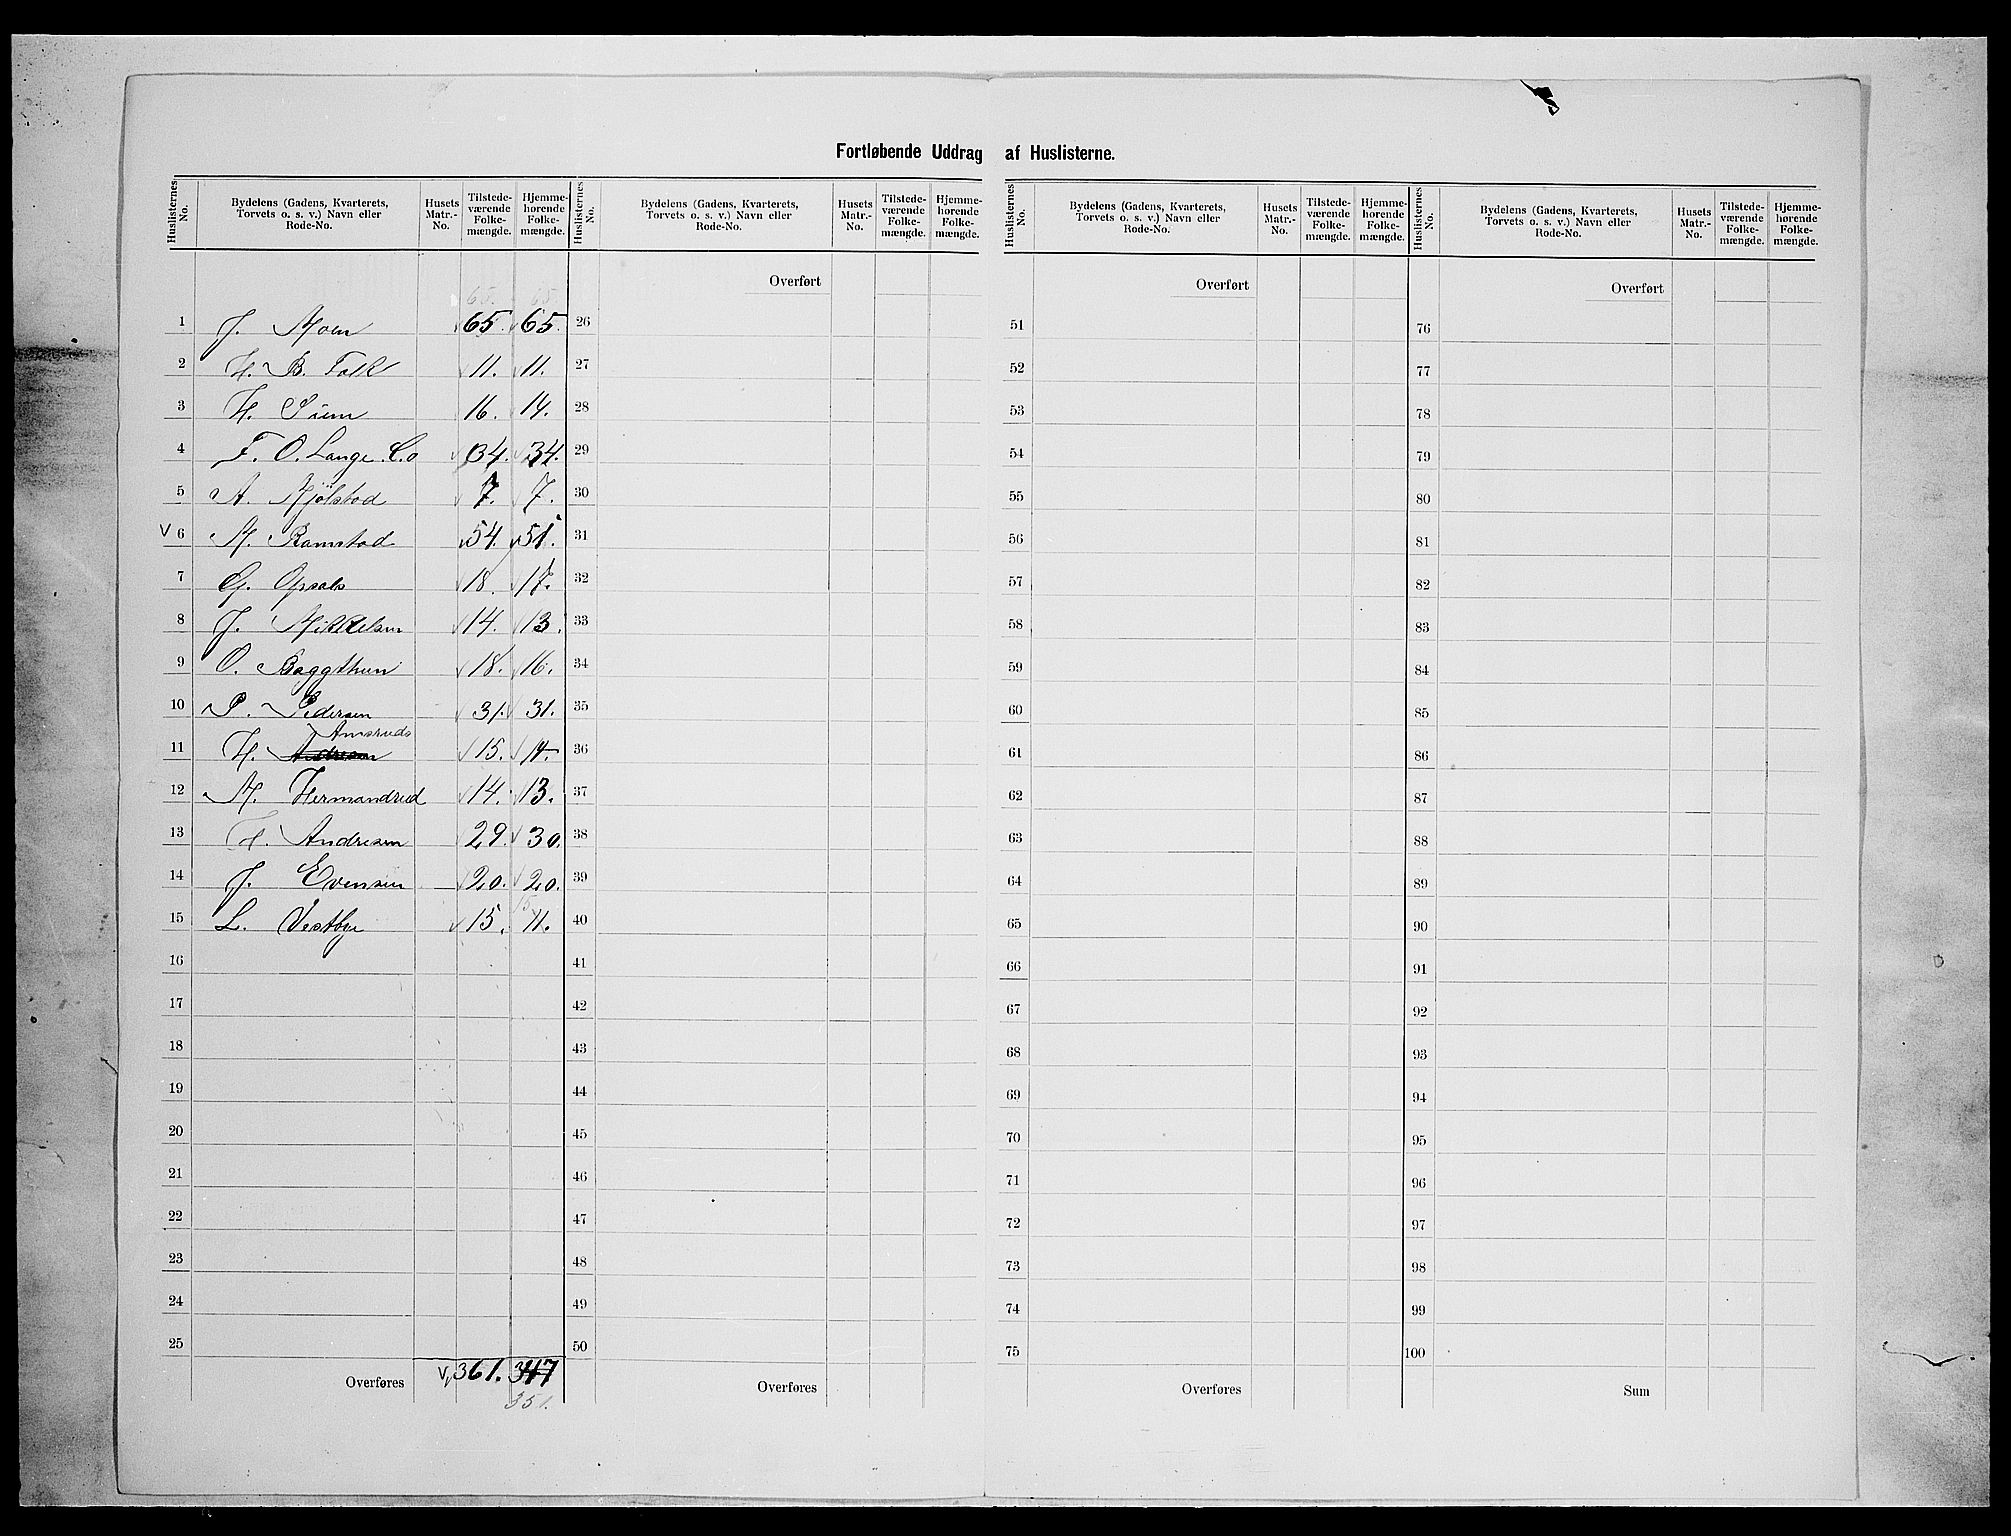 Fortløbende Uddrag af Huslisterne.
Huslisternes No. Bydelens (Gadens, Kvarterets, Torvets o. s. v.) Navn eller Rode-No. Husets Matr.-No. Tilstede-værende Folke-mængde. Hjemme-hørende Folke-mængde.
Huslisternes No. Bydelens (Gadens, Kvarterets, Torvets o. s. v.) Navn eller Rode-No. Husets Matr.-No. Tilstede-værende Folke-mængde. Hjemme-hørende Folke-mængde.
Huslisternes No. Bydelens (Gadens, Kvarterets, Torvets o. s. v.) Navn eller Rode-No. Husets Matr.-No. Tilstede-værende Folke-mængde. Hjemme-hørende Folke-mængde.
Huslisternes No. Bydelens (Gadens, Kvarterets, Torvets o. s. v.) Navn eller Rode-No. Husets Matr.-No. Tilstede-værende Folke-mængde. Hjemme-hørende Folke-mængde.
Overført Overført Overført
65. 65.
1 J. Moen √65. √65. 26 51 76
2 H. B. Falk √11. √11. 27 52 77
3 H. √16. √14. 28 53 78
4 F. O. Lange. C.o √34. √34. 29 54 79
5 A. Mjölstad √7. √7. 30 55 80
√ 6 M. Ramstad √54. √51. 31 56 81
7 G. Opsals √18. √17. 32 57 82
8 J. Mikkelsen √14. √13. 33 58 83
9 O. Baggthun √18. √16. 34 59 84
10 P. Pedersen √31. √31. 35 60 85
Amsruds
11 H. Andresen √15. √14. 36 61 86
12 M. Hermandrud √14. √13. 37 62 87
13 H. Andresen √29. √30. 38 63 88
14 J. Evensen √20. √20. 39 64 89
15
15 L. Vestbye √15. 11. 40 65 90
16 41 66 91
17 42 67 92
18 43 68 93
19 44 69 94
20 45 70 95
21 46 71 96
22 47 72 97
23 48 73 98
24 49 74 99
25 50 75 100
Overføres √361. 347 Overføres Overføres Sum
351.